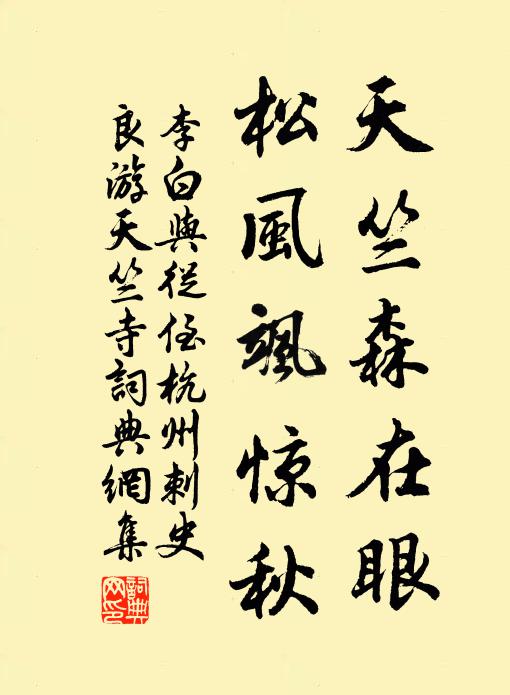 天竺森在眼
松風颯惊秋
李白與從侄杭州刺史
良游天竺寺詞典網集
詞典網印